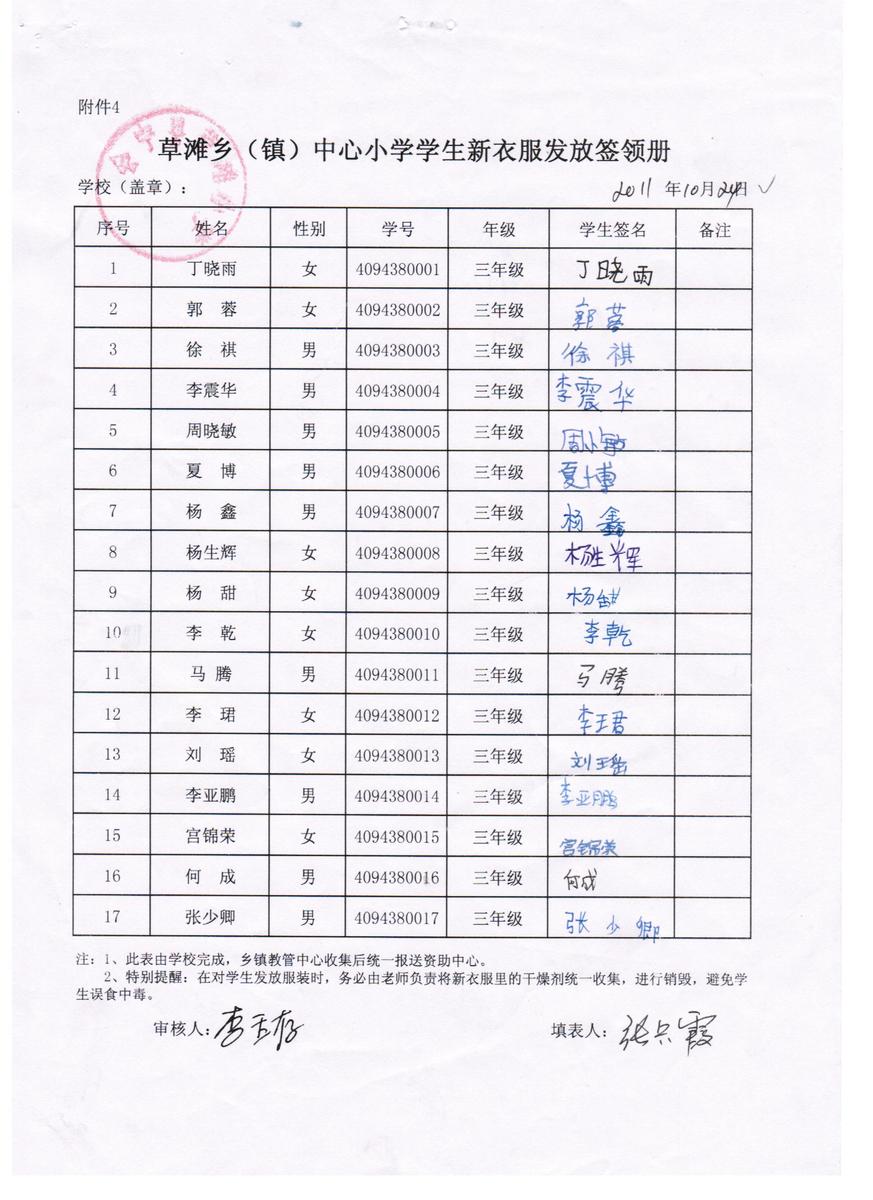 附件4
草滩乡（镇）中心小学学生新衣服发放签领册
学校（盖章）： 2011 年10月24日
序号 姓名 性别 学号 年级 学生签名 备注
1 丁晓雨 女 4094380001 三年级 丁晓雨
2 郭 蓉 女 4094380002 三年级 郭蓉
3 徐 祺 男 4094380003 三年级 徐祺
4 李震华 男 4094380004 三年级 李震华
5 周晓敏 男 4094380005 三年级 周小敏
6 夏 博 男 4094380006 三年级 夏博
7 杨 鑫 男 4094380007 三年级 杨鑫
8 杨生辉 女 4094380008 三年级 杨生辉
9 杨 甜 女 4094380009 三年级 杨甜
10 李 乾 女 4094380010 三年级 李乾
11 马 腾 男 4094380011 三年级 马腾
12 李 珺 女 4094380012 三年级 李珺
13 刘 瑶 女 4094380013 三年级 刘瑶
14 李亚鹏 男 4094380014 三年级 李亚鹏
15 宫锦荣 女 4094380015 三年级 宫锦荣
16 何 成 男 4094380016 三年级 何成
17 张少卿 男 4094380017 三年级 张少卿
注：1、此表由学校完成，乡镇教管中心收集后统一报送资助中心。
2、特别提醒：在对学生发放服装时，务必由老师负责将新衣服里的干燥剂统一收集，进行销毁，避免学
生误食中毒。
审核人： 填表人：